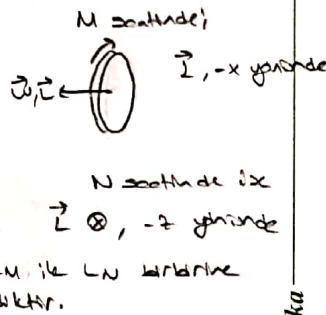 M saatinde;
L⃗, -x yönünde
ω⃗, L⃗
N saatinde ise
L⃗ ⊗, -z yönünde
LM ile LN birbirine
diktir.
ka